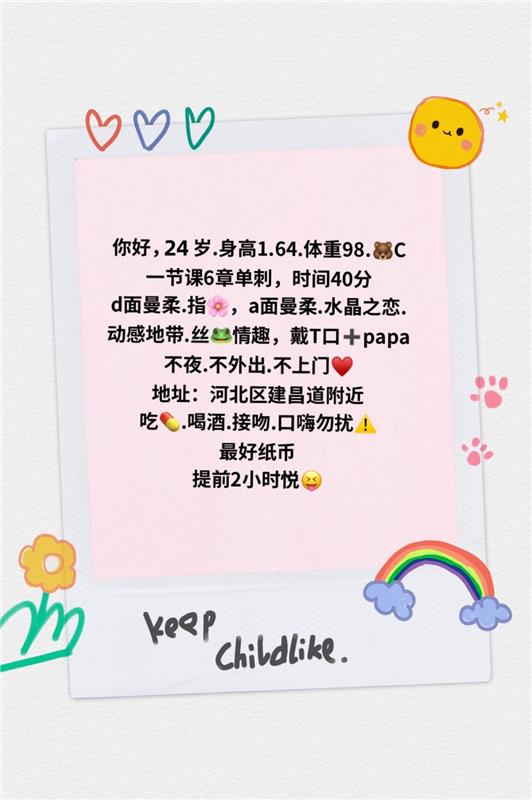 你好，24 岁.身高1.64.体重98.🐻C
一节课6章单刺，时间40分
d面曼柔.指🌸，a面曼柔.水晶之恋.
动感地带.丝🐸情趣，戴T口➕papa
不夜.不外出.不上门♥️
地址：河北区建昌道附近
吃💊.喝酒.接吻.口嗨勿扰⚠️
最好纸币
提前2小时悦😝
keep
Childlike.